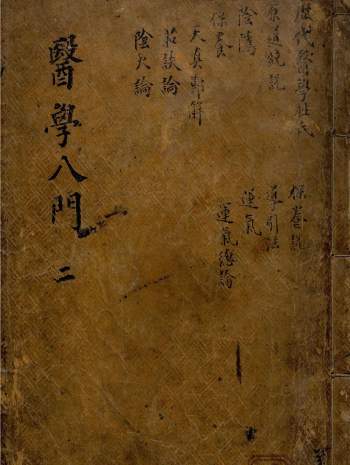 歷代醫學姓氏
原道統說
陰隲
保養
天真節解
茹淡論
陰火論
保養說
導引法
運氣
運氣總論
醫學入門 二